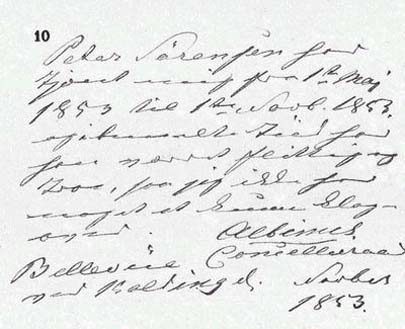 10
Peter Sørensen har
tjent mig fra 1ste Maj
1853 til 1ste Novb. 1853.
i hvilken Tid han
har været flittig og
troe, saa jeg ikke har
noget at kunne klage
over. Albinus
Cancelliraad
Bellevüe
ved Kolding d. Novber
1853.